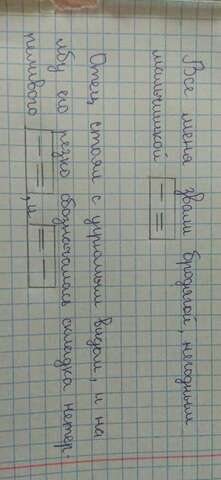 Все меня звали бродягой, негодным
мальчишкой
Отец стоял с угрюмым видом, и на
лбу его резко обозначалась складка нетер
пеливого
, и